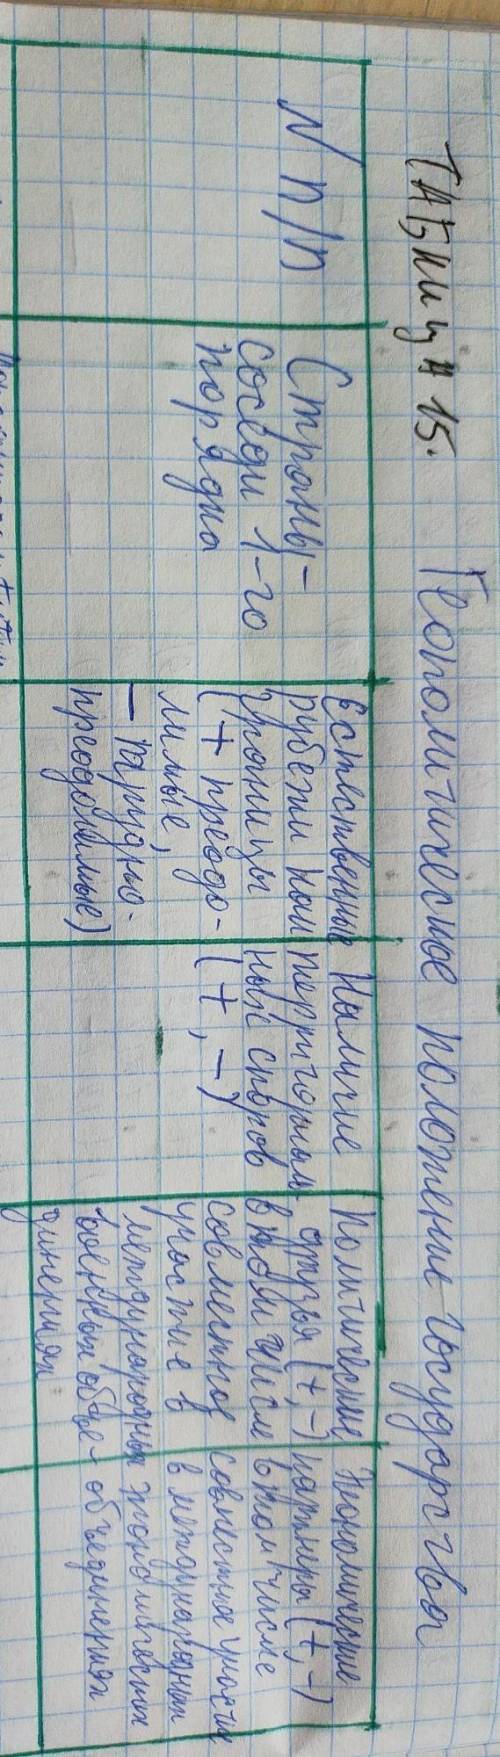 Таблица 15. Геополитическое положение государства
N п/п
Страны-
соседи 1-го
порядка
Естественные
рубежи или
границы
(+ преодо-
лимые,
– трудно-
преодолимые)
Наличие
территориаль-
ных споров
(+, –)
Политические
друзья (+, –)
в том числе
совместное
участие в
международных
военных объе-
динениях
Экономические
партнеры (+, –)
в том числе
совместное участие
в международных
экономических
объединениях